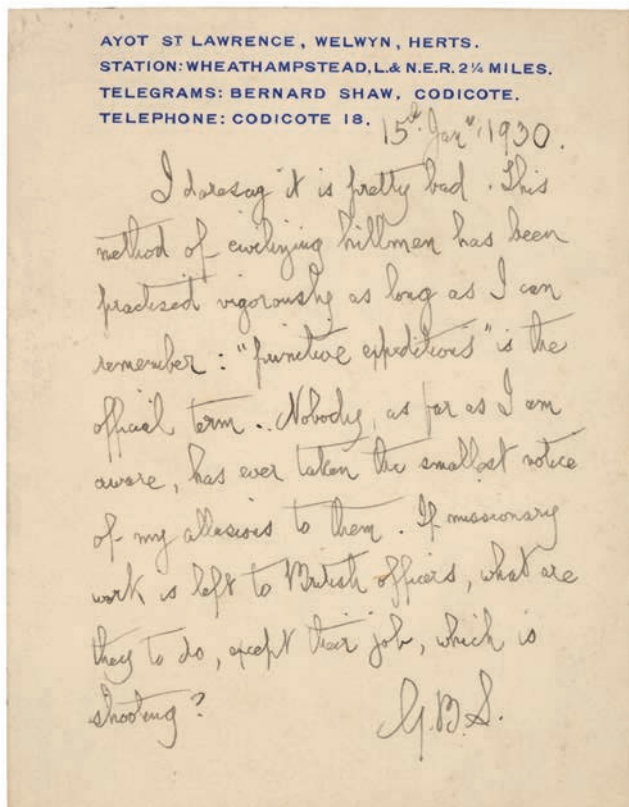 AYOT ST LAWRENCE, WELWYN, HERTS.
STATION: WHEATHAMPSTEAD, L.& N.E.R. 2¼ MILES.
TELEGRAMS: BERNARD SHAW, CODICOTE.
TELEPHONE: CODICOTE 18.
15th Jany 1930.
I daresay it is pretty bad. This
method of civilizing hillmen has been
practised vigorously as long as I can
remember: "punitive expeditions" is the
official term. Nobody, as far as I am
aware, has ever taken the smallest notice
of my allusions to them. If missionary
work is left to British officers, what are
they to do, except their job, which is
shooting?
G.B.S.